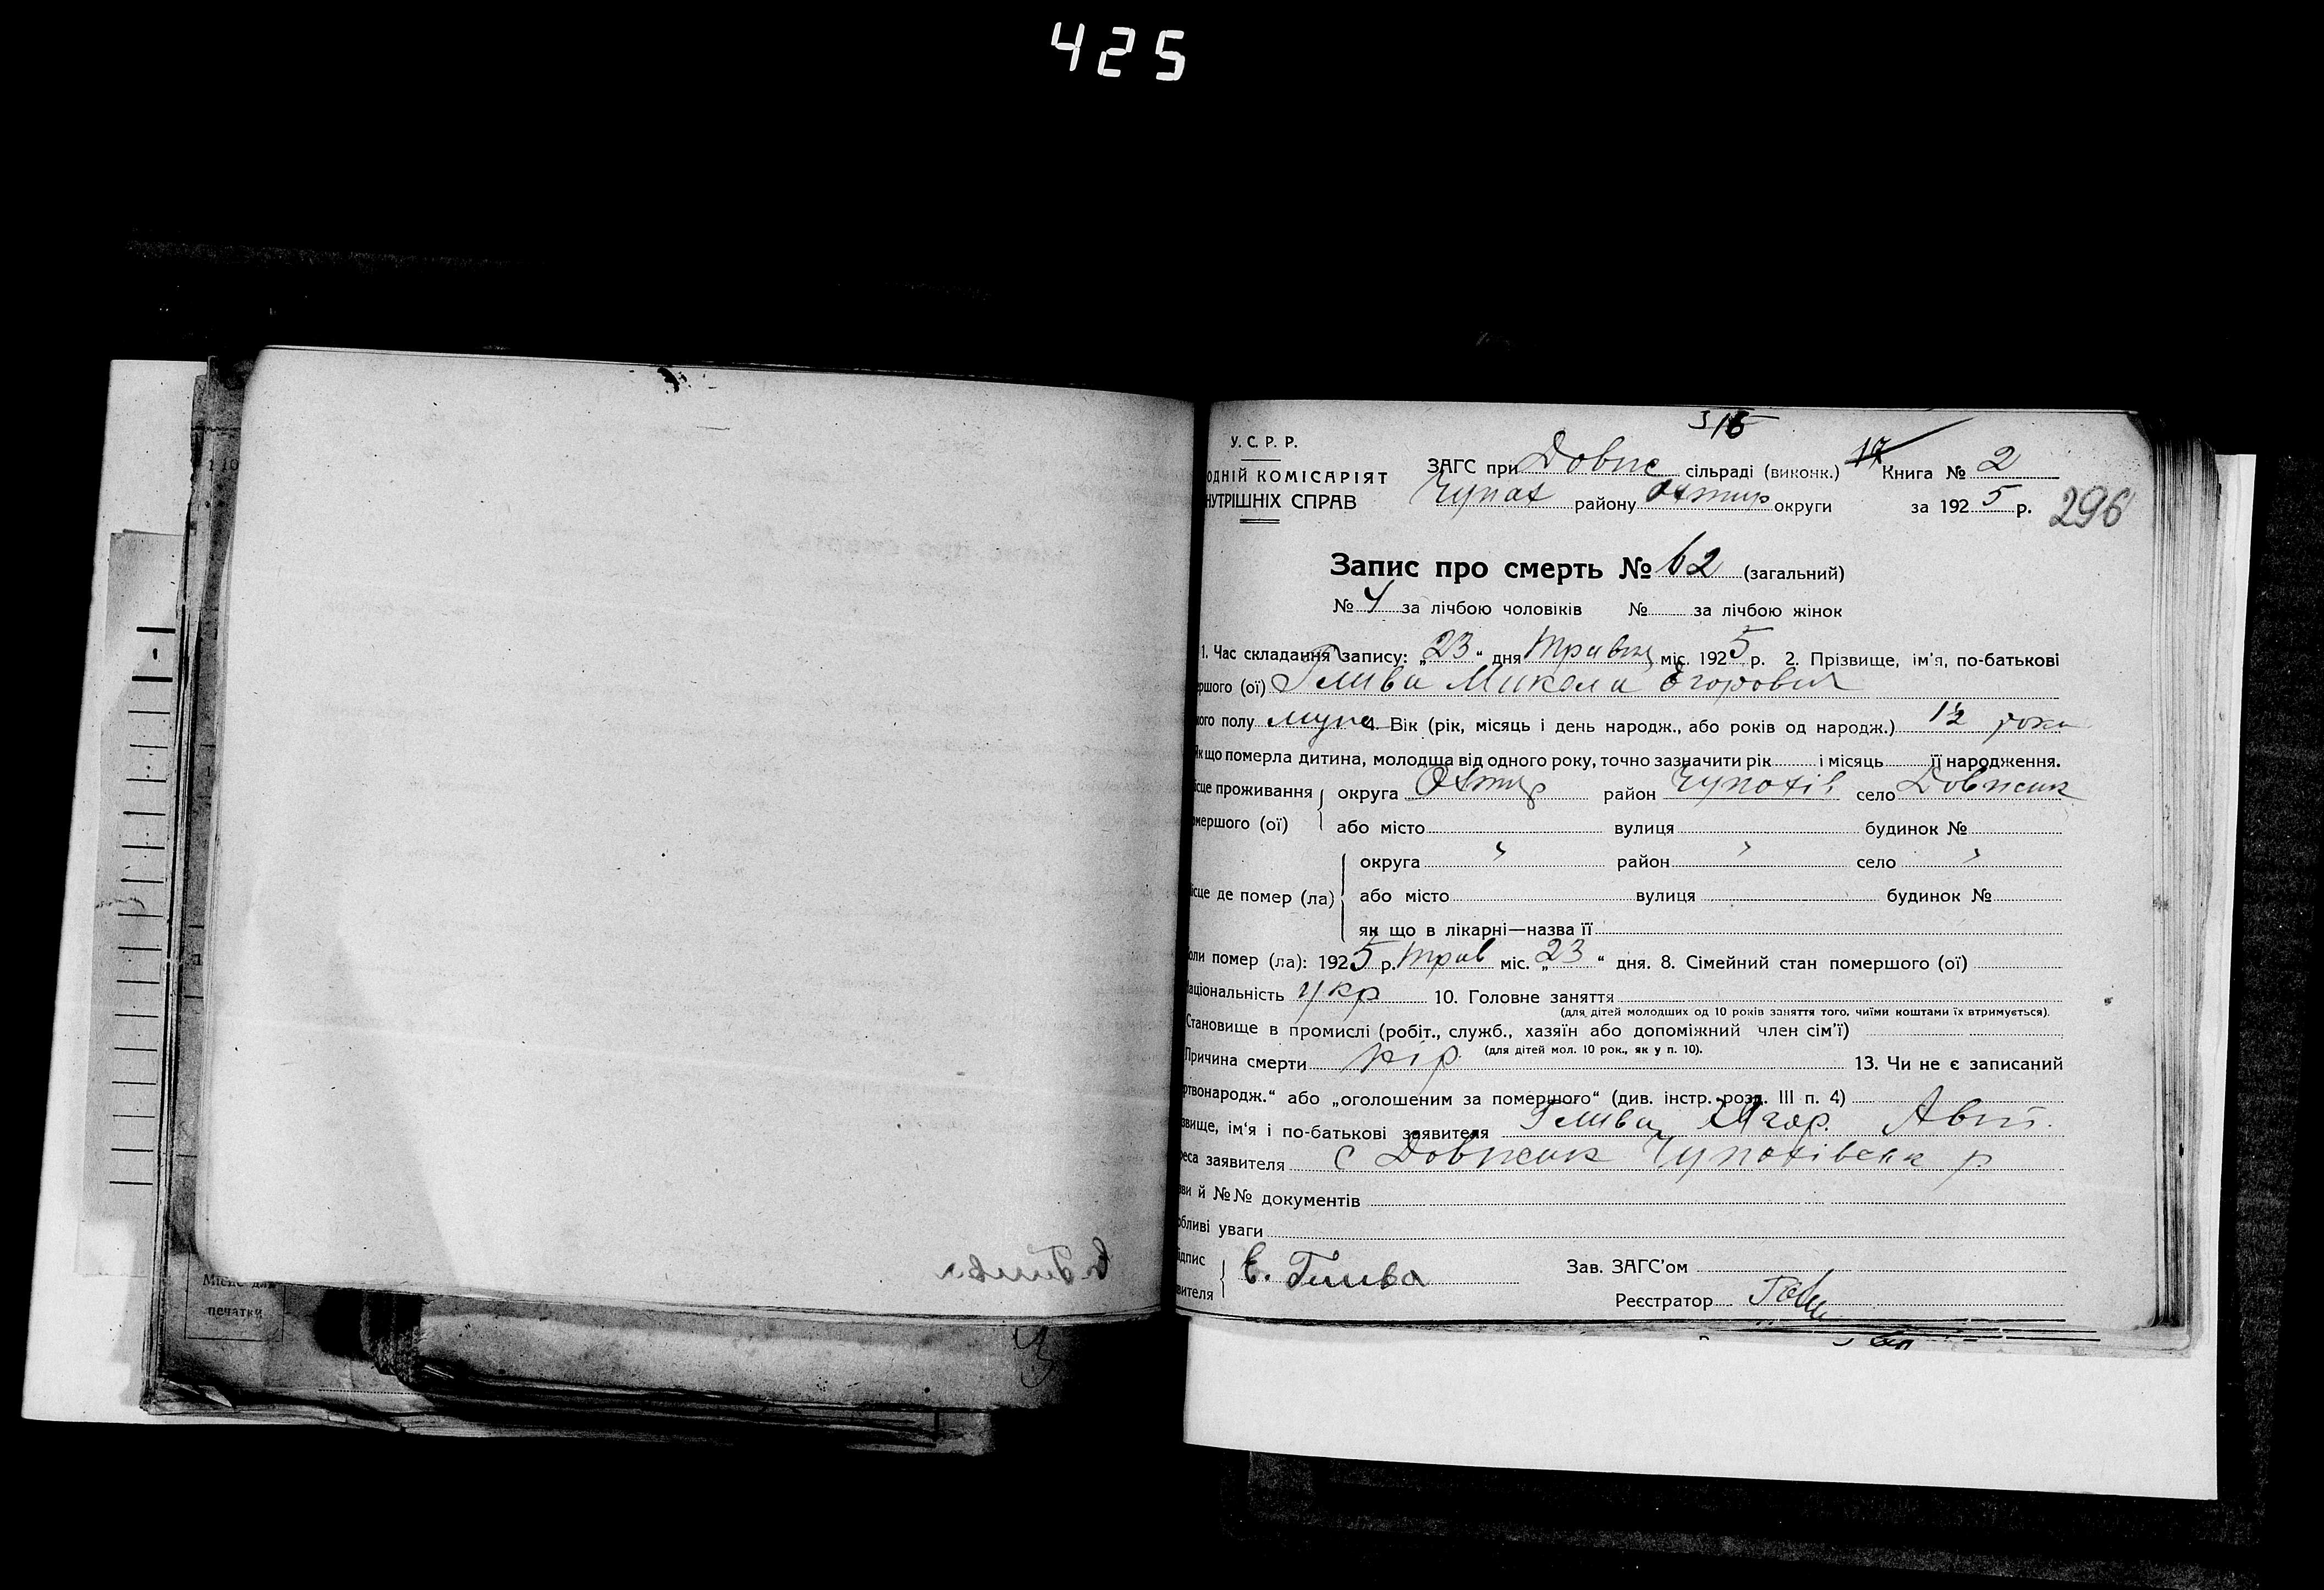 425
316
У. С. Р. Р.
ЗАГС при Довж сільраді (виконк.) 17 Книга № 2
ОДНІЙ КОМІСАРІЯТ
Чупах району Охтир округи за 1925 р. 296
НУТРІШНІХ СПРАВ
Запис про смерть № 62 (загальний)
№ 4 за лічбою чоловіків № за лічбою жінок
1. Час складання запису: „23“ дня Травня міс. 1925 р. 2. Прізвище, ім'я, по-батькові
ршого (ої) Глива Микола Егорович
ого полу муж 4. Вік (рік, місяць і день народж., або років од народж.) 1½ роки
Якщо померла дитина, молодща від одного року, точно зазначити рік і місяць її народження.
ісце проживання округа Охтир район Чупахів село Довжик
омершого (ої) або місто вулиця будинок №
округа " район " село "
ісце де помер (ла) або місто вулиця будинок №
як що в лікарні—назва її
оли помер (ла): 1925 р. Трав міс. „23“ дня. 8. Сімейний стан помершого (ої)
Національність укр 10. Головне заняття
(для дітей молодших од 10 років заняття того, чиїми коштами їх втримується).
Становище в промислі (робіт., служб., хазяїн або допоміжний член сім'ї)
(для дітей мол. 10 рок., як у п. 10).
Причина смерти кір 13. Чи не є записаний
ртвонародж.“ або „оголошеним за помершого“ (див. інстр. розд. III п. 4)
звище, ім'я і по-батькові заявителя Глива Егор.
реса заявителя с Довжик Чупахівськ р
зви й №№ документів
обливі уваги
ідпис
вителя Е. Глива Зав. ЗАГС'ом
Реєстратор
Місце для
печатки